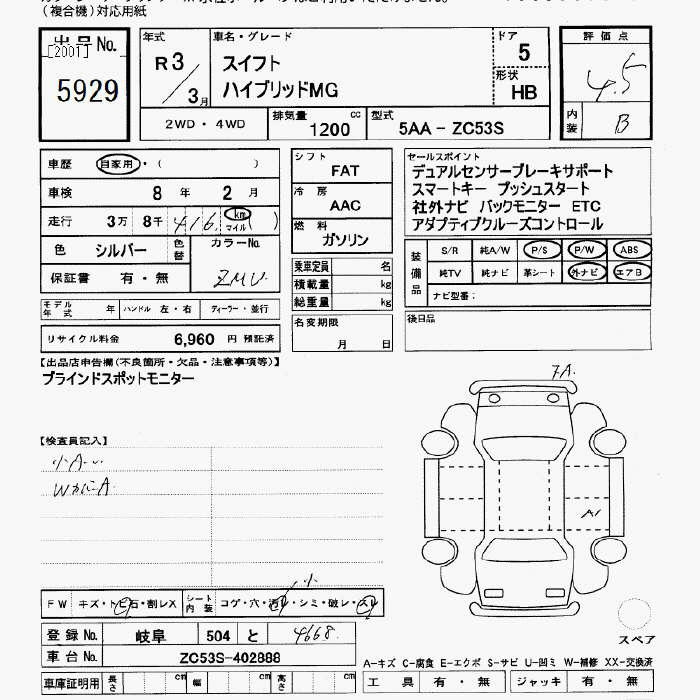 (複合機)対応用紙
出品No.
[2001]
5929
年式
R3/3月
車名・グレード
スイフト
ハイブリッドMG
ドア
5
形状
HB
評価点
4.5
内装
B
2WD・4WD
排気量 1200 cc
型式 5AA-ZC53S
車歴 自家用・( )
車検 8年 2月
走行 3万8千416 km マイル ( )
色 シルバー 色替 カラーNo. ZMU
保証書 有・無
シフト FAT
冷房 AAC
燃料 ガソリン
乗車定員 名
積載量 kg
総重量 kg
セールスポイント
デュアルセンサーブレーキサポート
スマートキー プッシュスタート
社外ナビ バックモニター ETC
アダプティブクルーズコントロール
装備品
S/R 純A/W P/S P/W ABS
純TV 純ナビ 革シート 外ナビ エアB
ナビ型番:
モデル年式 年 ハンドル 左・右 ディーラー・並行
リサイクル料金 6,960 円 預託済
名変期限
月 日
後日品
【出品店申告欄(不良箇所・欠品・注意事項等)】
ブラインドスポットモニター
7A.
【検査員記入】
小A..
WかにA
A1
FW キズ・トビ石・割レX シート内装 コゲ・穴・汚レ・シミ・破レ・スレ
小
登録No. 岐阜 504 と 4668.
車台No. ZC53S-402888
車庫証明用 長さ cm 幅 cm 高さ cm
スペア
A-キズ C-腐食 E-エクボ S-サビ U-凹ミ W-補修 XX-交換済
工具 有・無 ジャッキ 有・無